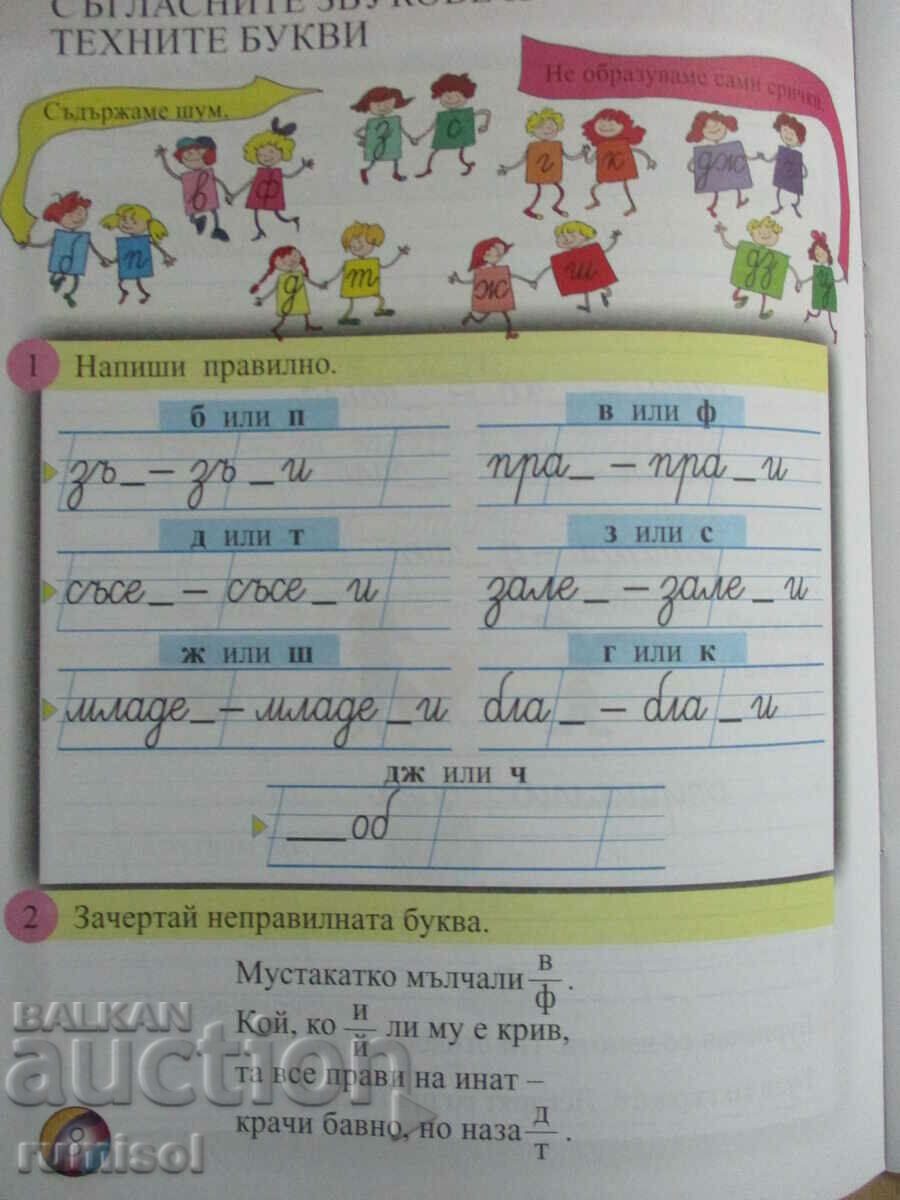 СЪГЛАСНИТЕ ЗВУКОВЕ И
ТЕХНИТЕ БУКВИ
Съдържаме шум.
Не образуваме сами срички.
в ф
з с
г к
дж ч
б п
д т
ж ш
дз ц
1 Напиши правилно.
б или п
зъ_ – зъ_и
в или ф
пра_ – пра_и
д или т
съсе_ – съсе_и
з или с
зале_ – зале_и
ж или ш
младе_ – младе_и
г или к
бла_ – бла_и
дж или ч
___об
2 Зачертай неправилната буква.
Мустакатко мълчали в/ф.
Кой, ко и/й ли му е крив,
та все прави на инат –
крачи бавно, но наза д/т.
8
BALKAN
auction
rumisol